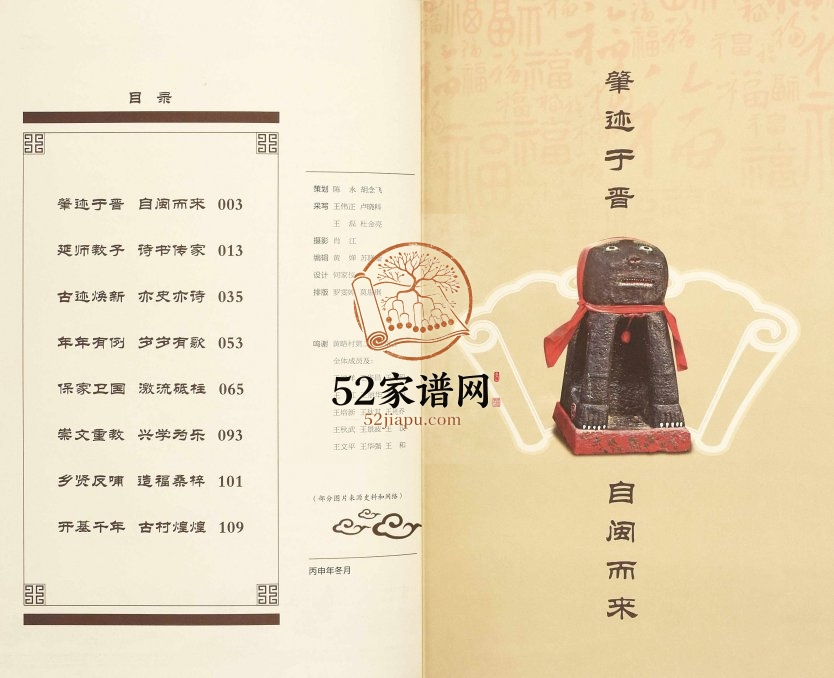 目录
肇迹于晋 自闽而来 003
延师教子 诗书传家 013
古迹焕新 亦史亦诗 035
年年有例 岁岁有歌 053
保家卫国 激流砥柱 065
崇文重教 兴学为乐 093
乡贤反哺 造福桑梓 101
开基千年 古村煌煌 109
策划 陈永 胡念飞
采写 王伟正 卢晓科
王磊 杜金亮
摄影 肖江
编辑
设计
排版
鸣谢
全体成员及:
王文平 王华强 王和
(部分图片来源史料和网络)
丙申年冬月
52家谱网
52jiapu.com
肇迹于晋
自闽而来